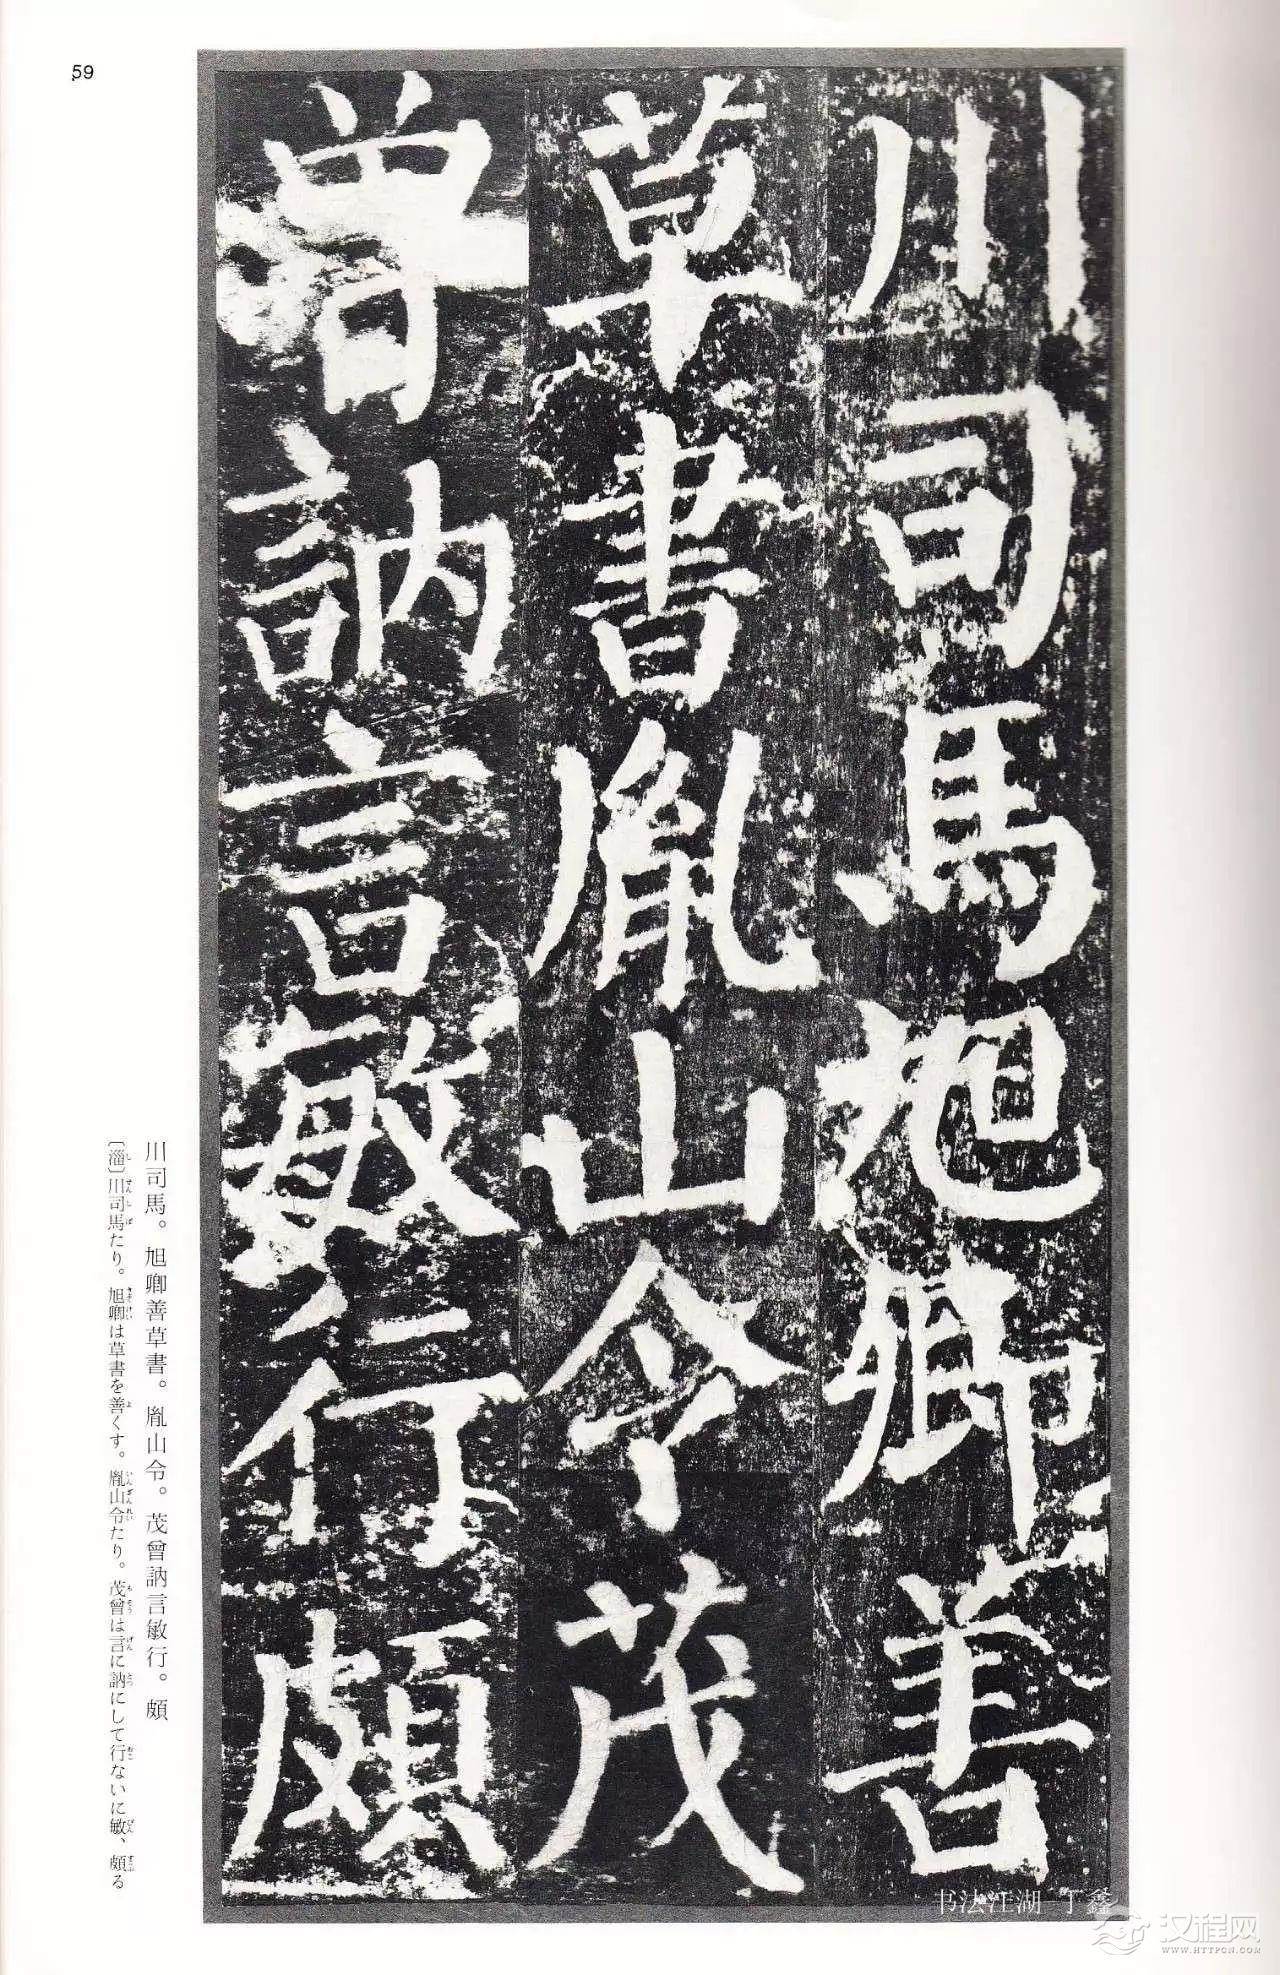 59
川司馬旭卿善
草書胤山令茂
曾訥言敏行頗
川司馬。旭卿善草書。胤山令。茂曾訥言敏行。頗
〔淄〕川司馬たり。旭卿は草書を善くす。胤山令たり。茂曾は言に訥にして行ないに敏、頗る
书法江湖 丁鑫
汉程网
WWW.HTTPCN.COM